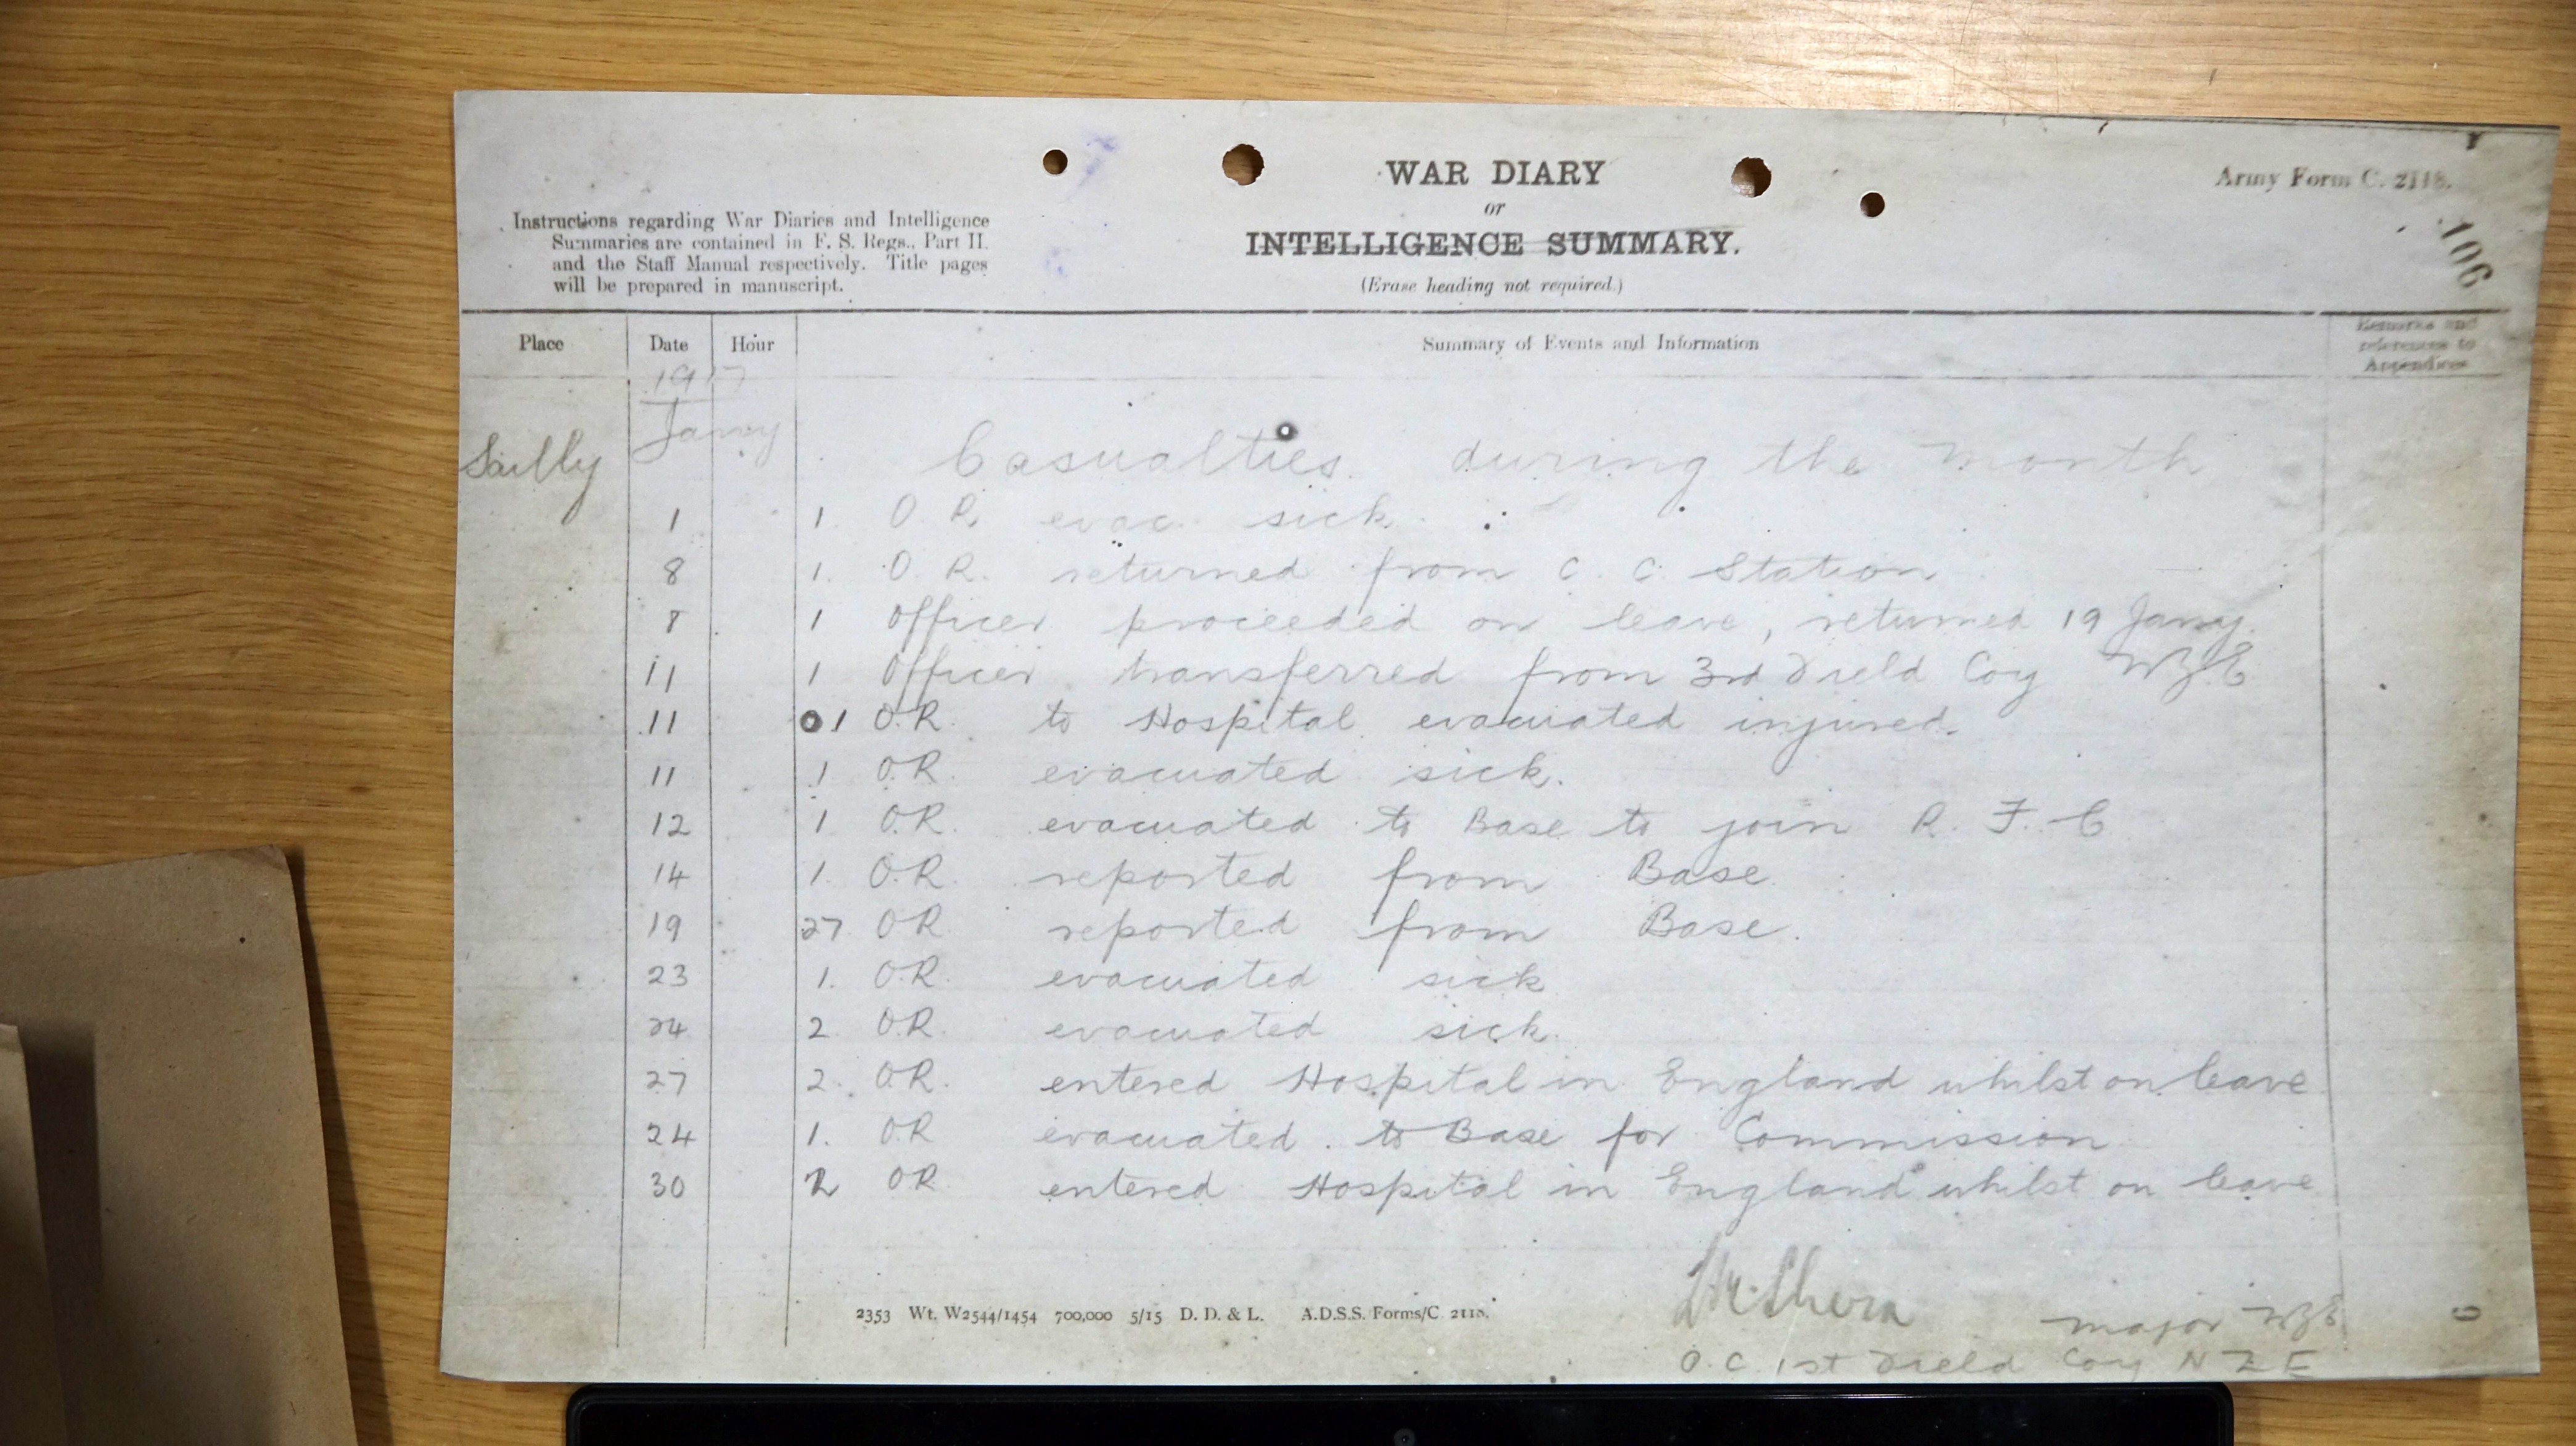 WAR DIARY
or
INTELLIGENCE SUMMARY.
(Erase heading not required.)
Army Form C. 2118.
106
Instructions regarding War Diaries and Intelligence
Summaries are contained in F. S. Regs., Part II.
and the Staff Manual respectively. Title pages
will be prepared in manuscript.
Place Date Hour Summary of Events and Information Remarks and references to Appendices
1917
Jany
Sailly Casualties during the month
1 1. O R evac. sick.
8 1. O. R. returned from C. C. Station
8 1 Officer proceeded on leave, returned 19 Jany.
11 1 Officer transferred from 3rd Field Coy NZE
11 1 O.R. to Hospital evacuated injured.
11 1 O.R. evacuated sick.
12 1 O.R. evacuated to Base to join R. F. C
14 1. O.R. reported from Base
19 27 O.R reported from Base.
23 1. O.R. evacuated sick
24 2. O.R. evacuated sick.
27 2. O.R. entered Hospital in England whilst on leave
24 1. O.R evacuated. to Base for Commission
30 2 O.R. entered Hospital in England whilst on leave
major NZE
O.C. 1st Field Coy N Z E
2353 Wt. W2544/1454 700,000 5/15 D. D. & L. A.D.S.S. Forms/C. 2118.